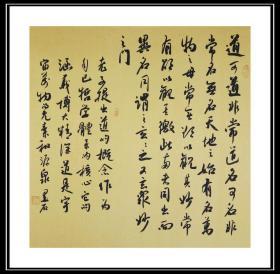 道可道非常道名可名非
常名无名天地之始有名萬
物之母常无欲以觀其妙常
有欲以觀其徼此兩者同出而
異名同謂之玄玄之又玄衆妙
之门
老子提出道的概念作为
自己哲学體系的核心它的
涵義博大精深道是宇
宙萬物的元素和源泉